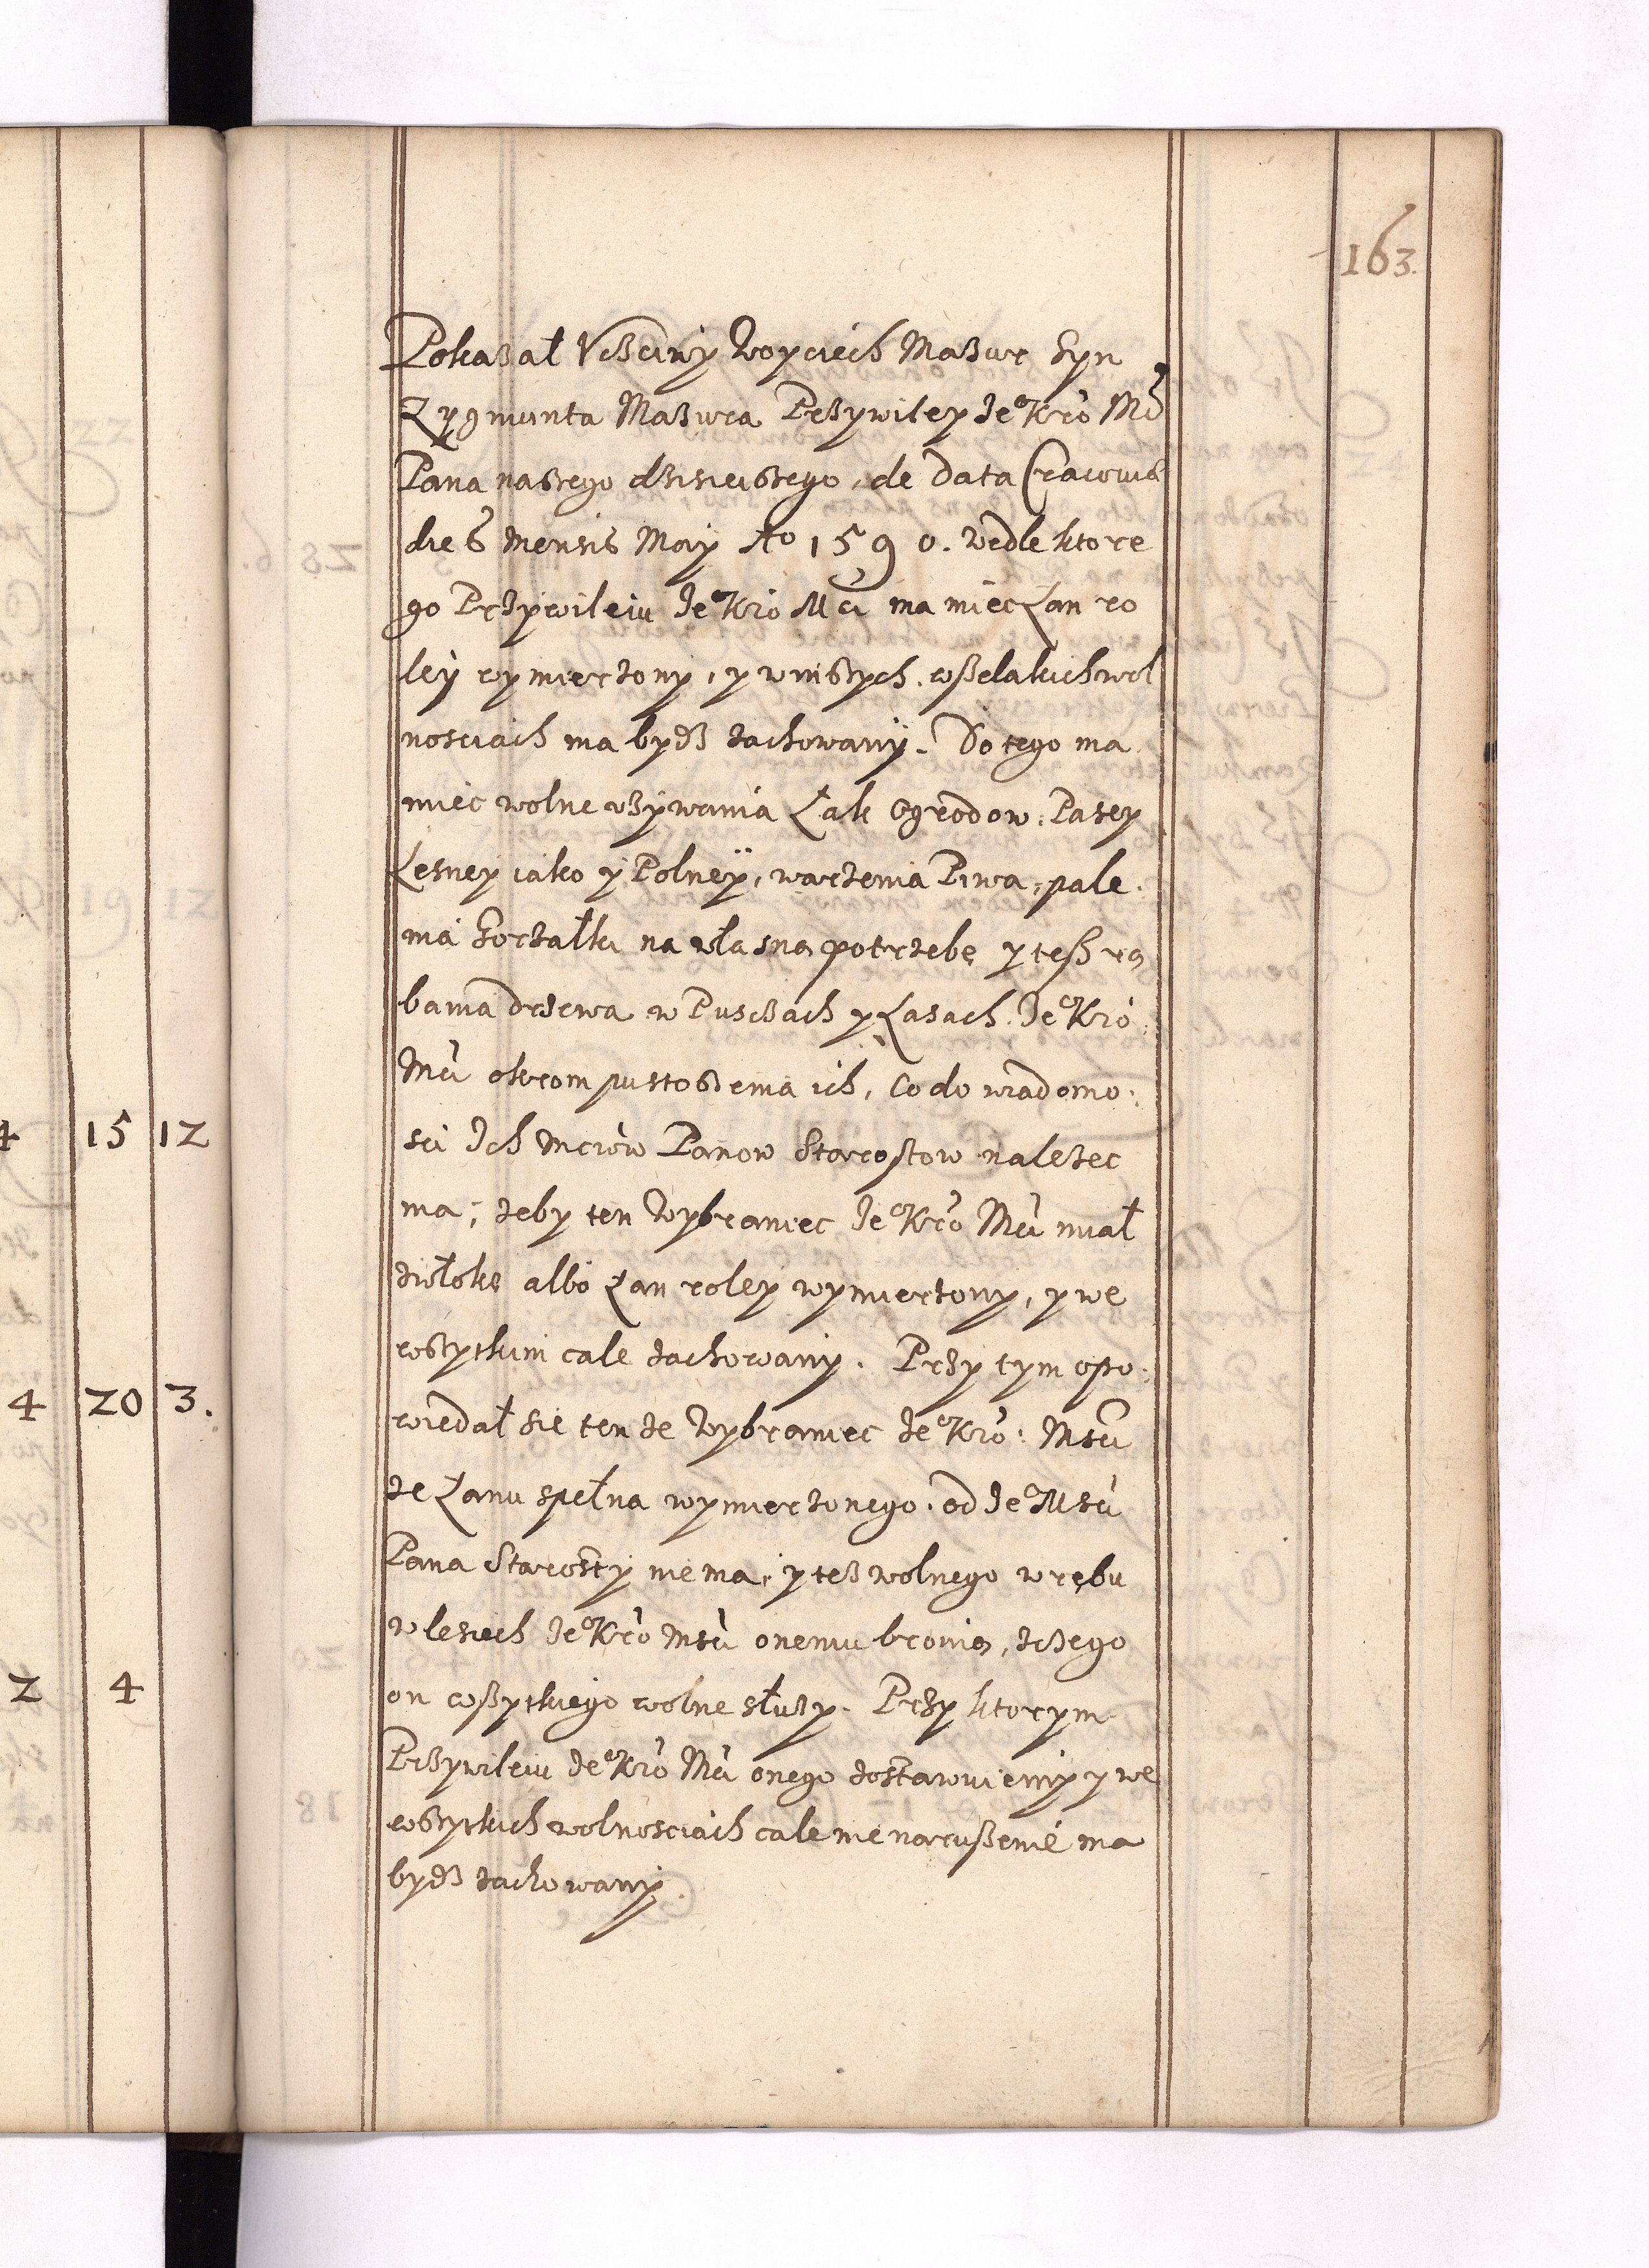 163.
Pokaβał Vcβciwy Woyciech Maβur Syn
Zygmunta Maβura Prβywiley Je° Kro Mći
Pana naßego dzisieißego, de data Cracoviæ
die 6 mensis Maÿ Ao 1590. Wedle ktore
go Prβywileiu Je° Kro Mći ma miec Łan ro
leÿ wymierzony, y w inßych wßelakich wol
nosciach ma bydβ zachowanÿ. Do tego ma
miec wolne vβywania Łak Ogrodow, Pasey
Lesney iako y Polneÿ, warzenia Piwa, pale
nia Gorzałki na własną potrzebę y teß rą
bania drzewa w Pusczach y Lasach Je° Kro
Mći okrom pustoßenia ich, Co do wiadomo:
sci Ich Mciow Panow Starostow nalezec
ma; zeby ten Wybraniec Je° Kro Mći miał
włokę albo Łan roley wymierzony, y we
wßytkim cale zachowany. Prβy tym opo:
wiedał sie ten ze Wybraniec Je° Kro: Msci
ze Łanu spełna wymierzonego od Je° Msci
Pana Starosty nie ma, y teβ wolnego wrębu
w lesiech Je° Kro Msci onemu bronią, zcβego
on wßytkiego wolne słuβy. Prβy ktorym
Prβywileiu Je° Kro Mći onego zostawuiemy y we
wßytkich wolnosciach cale nie narußenie ma
bydβ zachowany.
4 15 12
4 20 3.
2 4